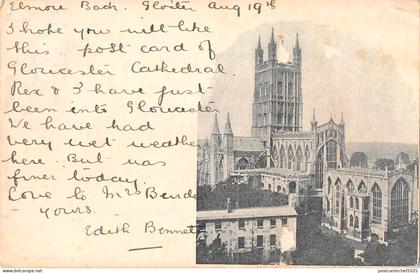 Elmore Back. Gloster Aug 19th
I hope you will like
this post card of
Gloucester Cathedral
Rex & I have just
been into Gloucester
We have had
very wet weather
here. But was
finer today.
Love to Mrs Bend
yours.
Edith Bennett
postcardschef2025